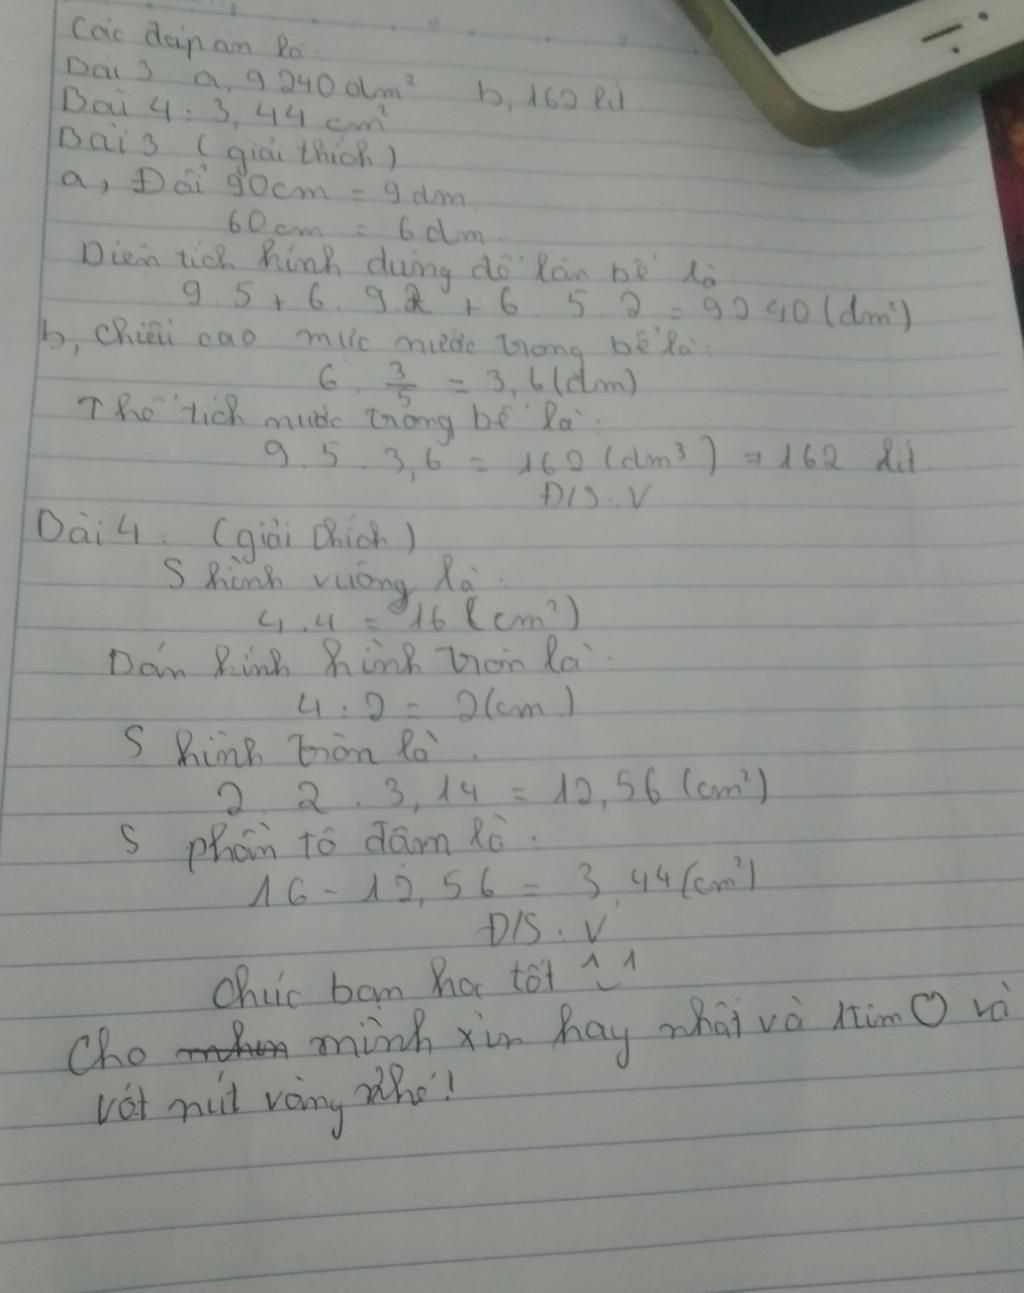 Các đáp án là
Bài 3 a, 9240 dm² b, 162 lít
Bài 4 : 3,44 cm²
Bài 3 (giải thích)
a, Đổi 90cm = 9dm
60cm = 6dm
Diện tích kính dùng để làn bể là
9.5 + 6.9.2 + 6.5.2 = 9240 (dm²)
b, chiều cao mức nước trong bể là:
6 . 3/5 = 3,6 (dm)
Thể tích nước trong bể là:
9.5.3,6 = 162 (dm³) = 162 lít
Đ/S.V
Bài 4. (giải thích)
S hình vuông là:
4.4 = 16 (cm²)
Bán kính hình tròn là:
4 : 2 = 2 (cm)
S hình tròn là.
2 2 . 3,14 = 12,56 (cm²)
S phần tô đậm là:
16 - 12,56 = 3,44 (cm²)
Đ/S.V
Chúc bạn học tốt ^^
Cho mình xin hay nhất và tim ♡ và
vót nút vàng nhé!